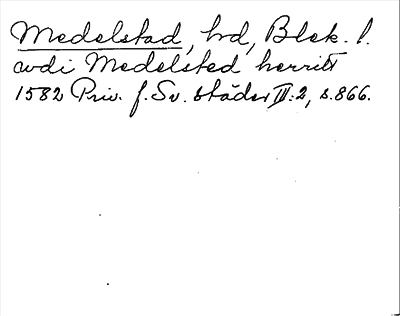 Medelstad, hrd, Blek. l.
wdi Medelsted herritt
1582 Priv. f. Sv. städer III:2, s.866.